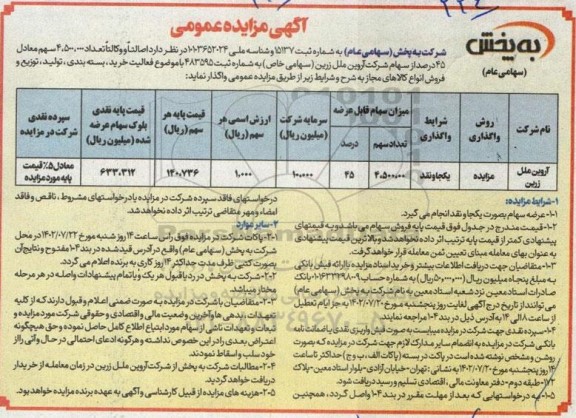 آگهی مزایده عمومی
به پخش
(سهامی عام)
شرکت به پخش (سهامی عام) به شماره ثبت ۱۵۱۳۷ و شناسه ملی ۱۰۱۰۳۶۵۲۰۲۴ در نظر دارد اصالتاً و وکالتاً تعداد ۴.۵۰۰.۰۰۰ سهم معادل
۴۵ درصد از سهام شرکت آروین ملل زرین (سهامی خاص) به شماره ثبت ۴۸۳۵۹۵ با موضوع فعالیت خرید، بسته بندی، تولید، توزیع و
فروش انواع کالاهای مجاز به شرح و شرایط زیر از طریق مزایده عمومی واگذار نماید:
نام شرکت
روش واگذاری
شرایط واگذاری
میزان سهام قابل عرضه
تعداد سهم
درصد
سرمایه شرکت (میلیون ریال)
ارزش اسمی هر سهم (ریال)
قیمت پایه هر سهم (ریال)
قیمت پایه نقدی بلوک سهام عرضه شده (میلیون ریال)
سپرده نقدی شرکت در مزایده
آروین ملل زرین
مزایده
یکجا و نقد
۴.۵۰۰.۰۰۰
۴۵
۱۰.۰۰۰
۱.۰۰۰
۱۴۰.۷۳۶
۶۳۳.۳۱۲
معادل ۵٪ قیمت پایه مورد مزایده
۱- شرایط مزایده:
۱-۱- عرضه سهام بصورت یکجا و نقد انجام می گیرد.
۱-۲- قیمت مندرج در جدول فوق قیمت پایه فروش سهام می باشد و به قیمتهای
پیشنهادی کمتر از قیمت پایه ترتیب اثر داده نخواهد شد و بالاترین قیمت پیشنهادی
به عنوان بهای معامله مبنای تعیین ثمن معامله قرار خواهد گرفت.
۱-۳- متقاضیان جهت دریافت اطلاعات بیشتر و خرید اسناد مزایده با ارائه فیش بانکی
به مبلغ پنجاه میلیون ریال به شماره حساب بانک
صادرات اسناد معین نزد شعبه اسناد معین به نام شرکت به پخش (سهامی عام)
می توانند از تاریخ درج آگهی لغایت روز پنجشنبه مورخ ۱۴۰۲/۰۷/۲۰ به جز ایام تعطیل
از ساعت ۸ الی ۱۴ به آدرس ذیل در بند ۱-۴ مراجعه نمایند.
۱-۴- سپرده نقدی جهت شرکت در مزایده میبایست به صورت فیش واریز نقدی یا ضمانت نامه
بانکی شرکت در مزایده به انضمام سایر مدارک لازم جهت شرکت در مزایده که بصورت
روشن و مشخص نوشته شده است در پاکت در بسته (پاکات الف، ب و ج) حداکثر تا ساعت
۱۴ روز پنجشنبه مورخ ۱۴۰۲/۰۷/۲۰ به نشانی: تهران- خیابان آزادی- بلوار استاد معین- پلاک
۱۷۲- طبقه دوم- دفتر معاونت مالی، اقتصادی تسلیم و رسید دریافت شود.
۱-۵- به درخواستهایی که بعد از مهلت مقرر در بند ۱-۴ واصل گردد، همچنین
درخواستهای فاقد سپرده شرکت در مزایده یا درخواستهای مشروط، ناقص و فاقد
امضاء و مهر متقاضی ترتیب اثر داده نخواهد شد.
۲- سایر موارد
۲-۱- پاکات شرکت در مزایده فوق راس ساعت ۱۴ روز شنبه مورخ ۱۴۰۲/۰۷/۲۲ در محل
شرکت به پخش (سهامی عام) واقع در آدرس قید شده در بند ۱-۴ مفتوح و نتایج آن
بصورت کتبی ظرف مدت حداکثر ۱۴ روز کاری به برنده اعلام می گردد.
۲-۲- شرکت به پخش در رد یا قبول هر یک و یا تمام پیشنهادات واصله در هر مرحله
مختار میباشد
۲-۳- متقاضیان با شرکت در مزایده به صورت ضمنی اعلام و قبول دارند که از کلیه
تعهدات، بدهی ها و آخرین وضعیت مالی و اقتصادی و حقوقی شرکت مورد مزایده و
تبعات و تعهدات ناشی از سهام مورد ابتیاع اطلاع کامل حاصل نموده و حق هیچگونه
اعتراض بعدی را در این خصوص نداشته و هرگونه ادعای احتمالی در حال و آتی را از
خود سلب و اسقاط نمودند.
۲-۴- مطالبات شرکت به پخش از شرکت آروین ملل زرین در زمان معامله از خریدار
دریافت خواهد گردید.
۲-۵- هزینه های مزایده از قبیل کارشناسی و آگهی به عهده برنده مزایده خواهد بود.